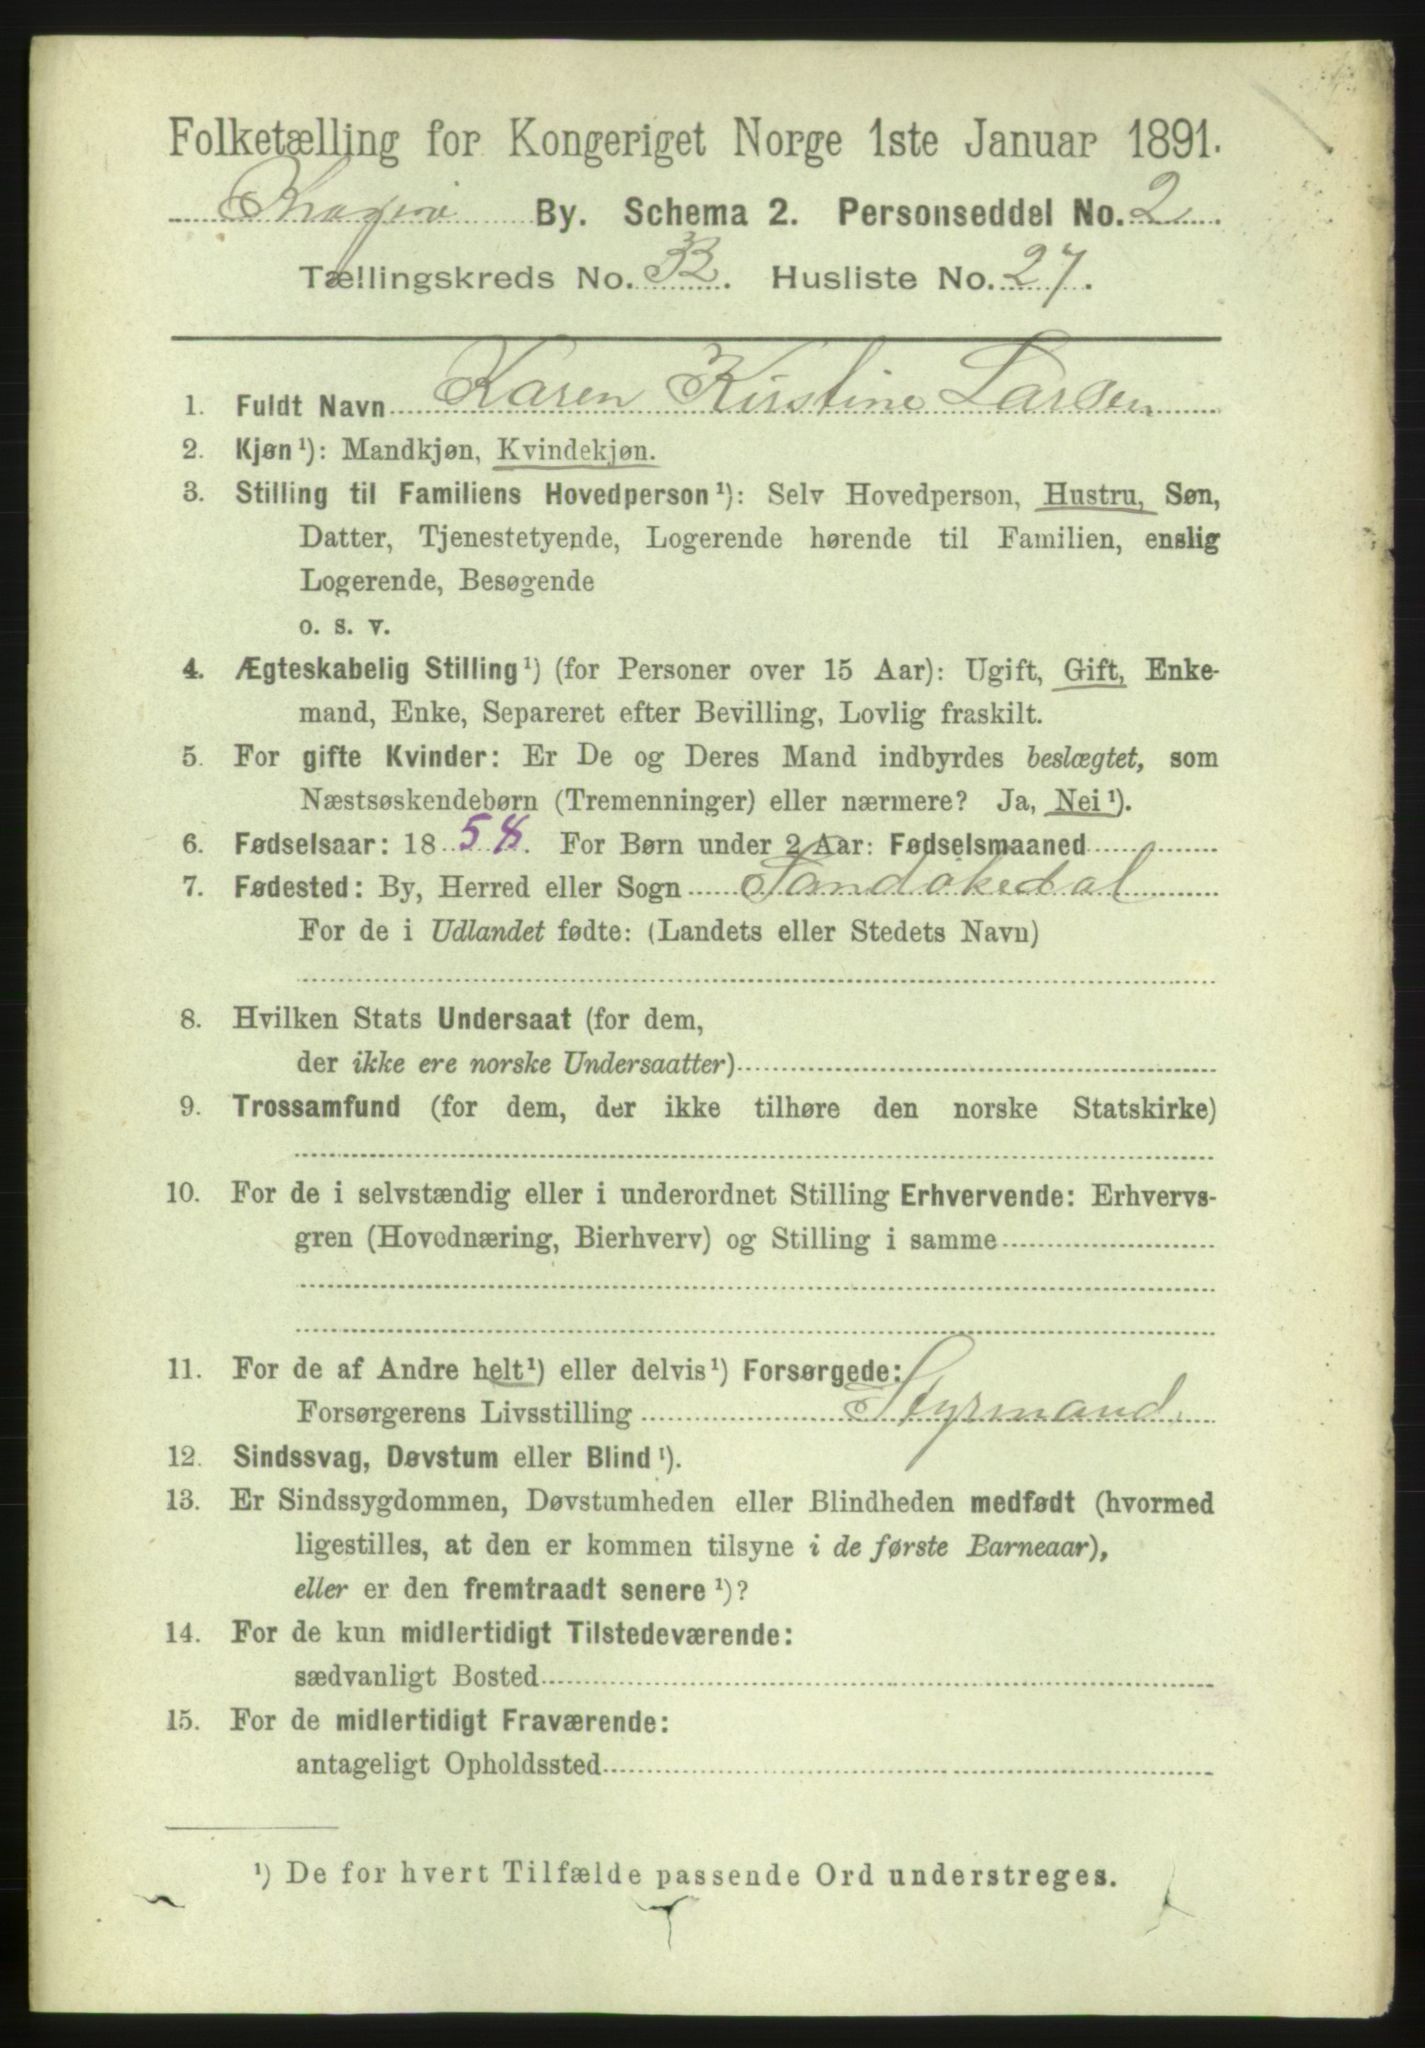 Folketælling for Kongeriget Norge 1ste Januar 1891.
Kragerø By. Schema 2. Personseddel No. 2
Tællingskreds No. 32. Husliste No. 27.
1. Fuldt Navn Karen Kirstine Larsen
2. Kjøn¹): Mandkjøn, Kvindekjøn.
3. Stilling til Familiens Hovedperson¹): Selv Hovedperson, Hustru, Søn,
Datter, Tjenestetyende, Logerende hørende til Familien, enslig
Logerende, Besøgende
o. s. v.
4. Ægteskabelig Stilling¹) (for Personer over 15 Aar): Ugift, Gift, Enke-
mand, Enke, Separeret efter Bevilling, Lovlig fraskilt.
5. For gifte Kvinder: Er De og Deres Mand indbyrdes beslægtet, som
Næstsøskendebørn (Tremenninger) eller nærmere? Ja, Nei¹).
6. Fødselsaar: 1858. For Børn under 2 Aar: Fødselsmaaned
7. Fødested: By, Herred eller Sogn Sandøkedal
For de i Udlandet fødte: (Landets eller Stedets Navn)
8. Hvilken Stats Undersaat (for dem,
der ikke ere norske Undersaatter)
9. Trossamfund (for dem, der ikke tilhøre den norske Statskirke)
10. For de i selvstændig eller i underordnet Stilling Erhvervende: Erhvervs-
gren (Hovednæring, Bierhverv) og Stilling i samme
11. For de af Andre helt¹) eller delvis¹) Forsørgede:
Forsørgerens Livsstilling Styrmand
12. Sindssvag, Døvstum eller Blind¹).
13. Er Sindssygdommen, Døvstumheden eller Blindheden medfødt (hvormed
ligestilles, at den er kommen tilsyne i de første Barneaar),
eller er den fremtraadt senere¹)?
14. For de kun midlertidigt Tilstedeværende:
sædvanligt Bosted
15. For de midlertidigt Fraværende:
antageligt Opholdssted
¹) De for hvert Tilfælde passende Ord understreges.